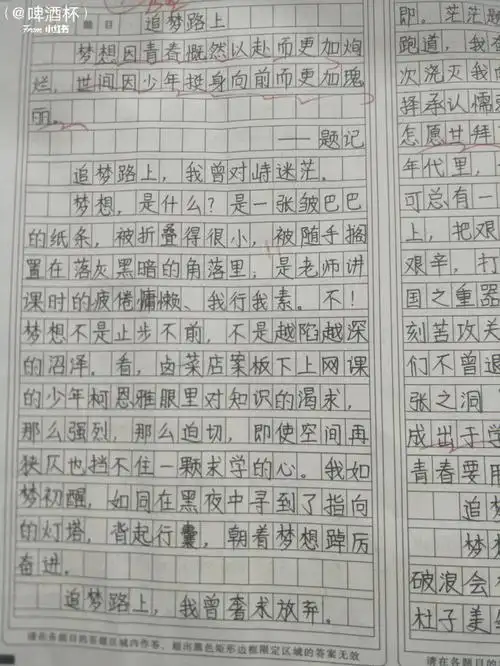 @啤酒杯
From 小红书
题目 追梦路上
梦想因青春慨然以赴而更加炯
烂，世间因少年挺身向前而更加瑰
丽。
——题记
追梦路上，我曾对峙迷茫。
梦想，是什么？是一张皱巴巴
的纸条，被折叠得很小，被随手搁
置在落灰黑暗的角落里；是老师讲
课时的疲倦慵懒、我行我素。不！
梦想不是止步不前，不是越陷越深
的沼泽。看，卤菜店案板下上网课
的少年柯恩雅眼里对知识的渴求，
那么强烈，那么迫切，即使空间再
狭仄也挡不住一颗求学的心。我如
梦初醒，如同在黑夜中寻到了指向
的灯塔，背起行囊，朝着梦想踔厉
奋进。
追梦路上，我曾奢求放弃。
请在各题目的答题区域内作答，超出黑色矩形边框限定区域的答案无效
即。茫茫题
跑道，我
次浇灭我的
择承认懦
怎愿甘拜
年代里，
可总有一
上，把艰
艰辛，打
国之重器
刻苦攻关
们不曾退
张之洞
成出于学
青春要用
追梦
梦
破浪会
杜子美
请在各题目的